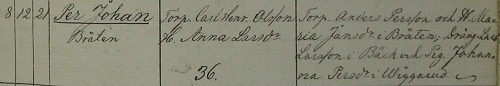 8 12 21 Per Johan
Bråten
Torp. Carl Henr. Olsson
H. Anna Larsdr
36.
Torp. Anders Persson och H. Ma-
ria Jansdr i Bråten, Dräng Lars
Larsson i Bäck och Pig. Johan-
na Persdr i Wiggarud